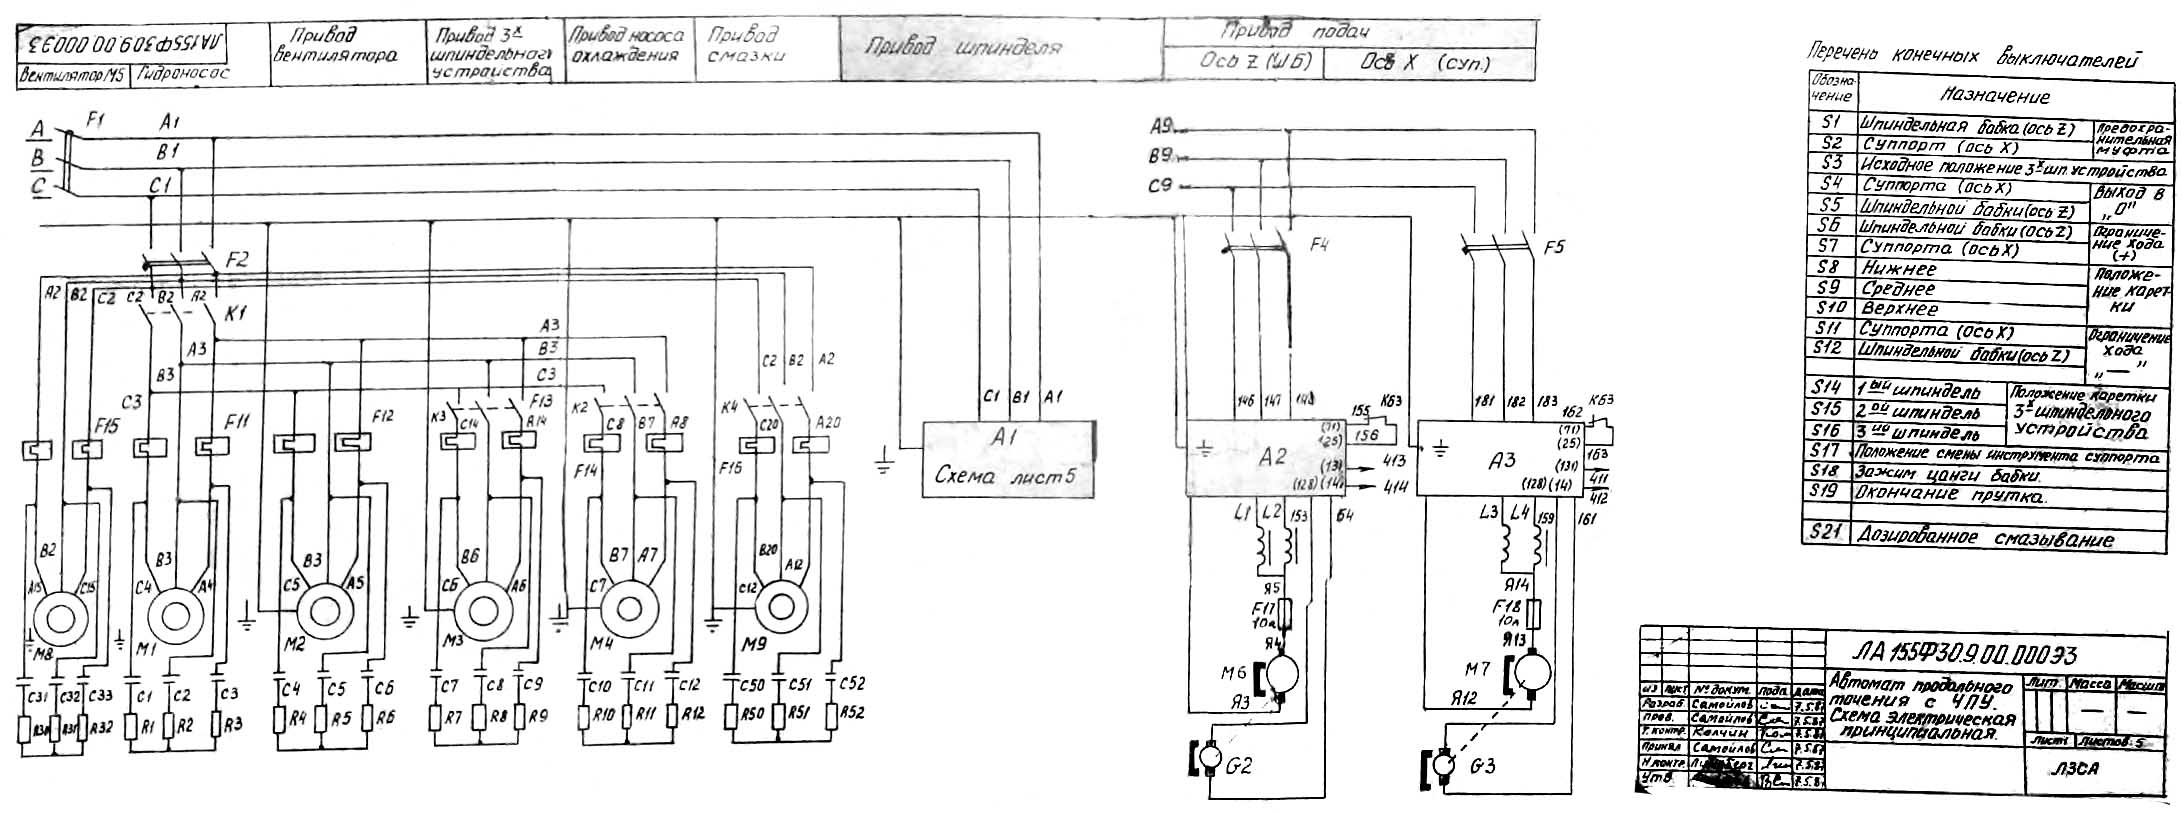 ЛА155Ф30.9.00.000Э3
Вентилятор М5
Гидронасос
Привод
вентилятора
Привод 3х
шпиндельного
устройства
Привод насоса
охлаждения
Привод
смазки
Привод шпинделя
Привод подач
Ось Z (ШБ)
Ось X (суп.)
A F1 A1
B B1
C C1
F2
A2 B2 C2 C2 B2 A2 K1
A3 B3 C3
A3
B3
C3
C2 B2 A2
F15 F11 F12
K3 C14 F13 A14
K2 C8 B7 A8
K4 C20 A20
F14 F16
C1 B1 A1
A1
Схема лист 5
A9
B9
C9
F4 F5
146 147 148
155 КБ3
156
(71)
(25)
A2
(131)
(128) (14)
413
414
181 182 183
162 КБ3
(71)
(25)
163
A3
(131)
(128) (14)
411
412
B2 A15 C15 M8
B3 C4 A4 M1
B3 C5 A5 M2
B6 C6 A6 M3
B7 A7 C7 M4
B20 C12 A12 M9
C31 C32 C33
C1 C2 C3
C4 C5 C6
C7 C8 C9
C10 C11 C12
C50 C51 C52
R30 R31 R32
R1 R2 R3
R4 R5 R6
R7 R8 R9
R10 R11 R12
R50 R51 R52
L1 L2 153 64
Я5
F17
10а
Я4
M6
Я3
G2
L3 L4 159 161
Я14
F18
10а
Я13
M7
Я12
G3
Перечень конечных выключателей
Обозна-
чение
Назначение
S1 Шпиндельная бабка (ось Z)
S2 Суппорт (ось X)
Предохра-
нительная
муфта
S3 Исходное положение 3х шп. устройства
S4 Суппорта (ось X)
S5 Шпиндельной бабки (ось Z)
Выход в
„0"
S6 Шпиндельной бабки (ось Z)
S7 Суппорта (ось X)
Ограниче-
ние хода
(+)
S8 Нижнее
S9 Среднее
S10 Верхнее
Положе-
ние карет-
ки
S11 Суппорта (ось X)
S12 Шпиндельной бабки (ось Z)
Ограничение
хода
„—"
S14 1ый шпиндель
S15 2ой шпиндель
S16 3ий шпиндель
Положение каретки
3х шпиндельного
устройства
S17 Положение смены инструмента суппорта
S18 Зажим цанги бабки.
S19 Окончание прутка.
S21 Дозированное смазывание
ЛА155Ф30.9.00.000Э3
Автомат продольного
точения с ЧПУ.
Схема электрическая
принципиальная.
Лит. Масса Масшт
— —
Лист 1 Листов 5
ЛЗСА
из лист № докум. подп дата
Разраб Самойлов 7.5.87
Пров. Самойлов 7.5.87
Т.контр. Колчин 7.5.87
Принял Самойлов 7.5.87
Н.контр. 7.5.87
Утв 7.5.87